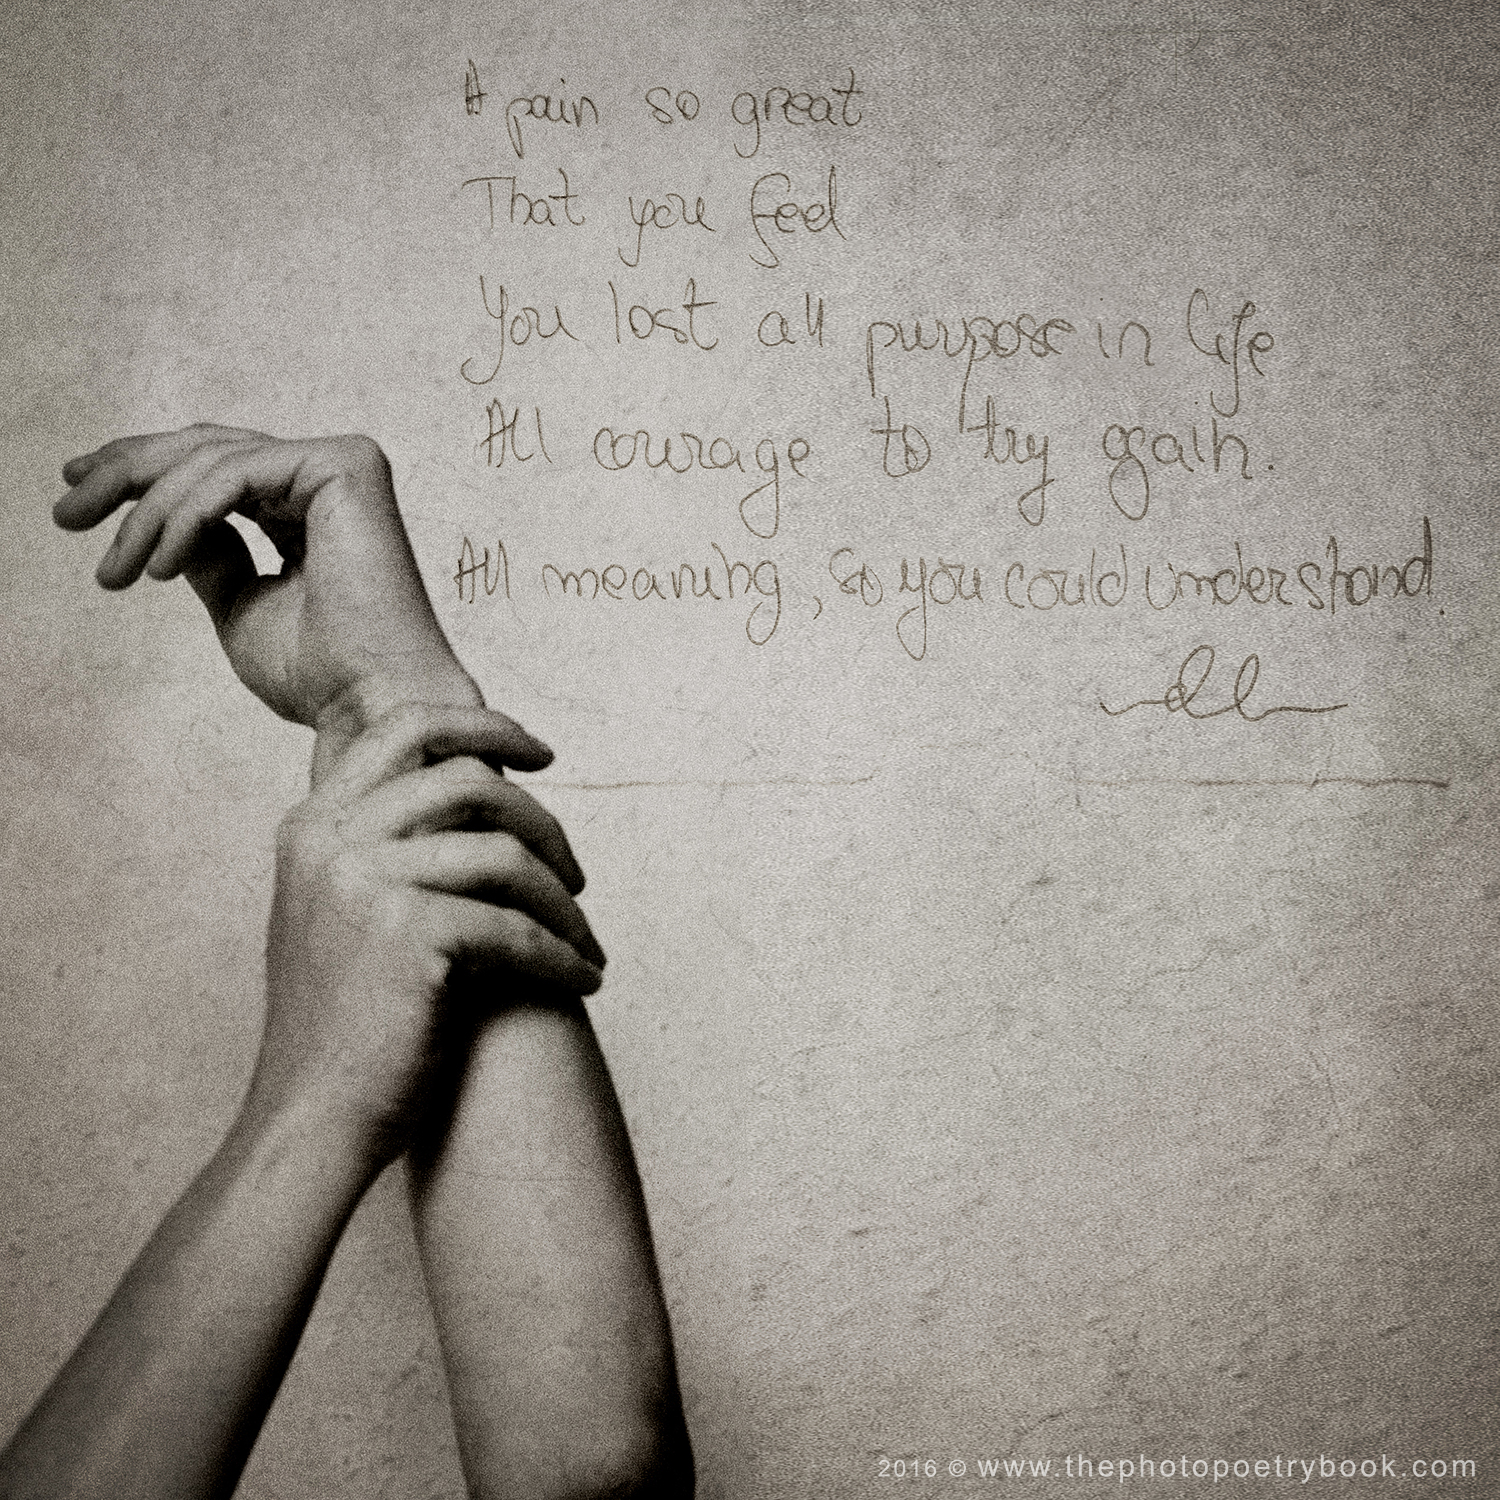 A pain so great
That you feel
You lost all purpose in life
All courage to try again.
All meaning, so you could understand.
2016 © www.thephotopoetrybook.com